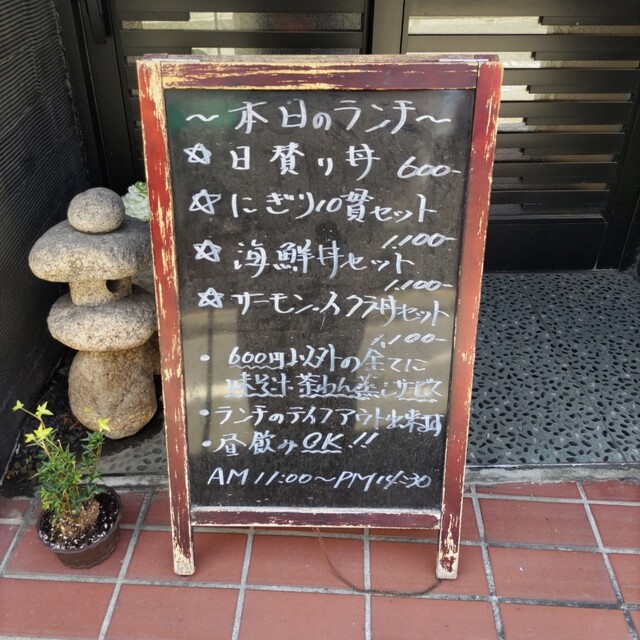 ～本日のランチ～
☆日替り丼 600-
☆にぎり10貫セット
1,100-
☆海鮮丼セット
1,100-
☆サーモン・イクラ丼セット
1,100-
・600円以外の全てに
味噌汁 茶わん蒸しサービス
・ランチのテイクアウト出来ます
・昼飲みOK!!
AM 11:00～PM 14:30